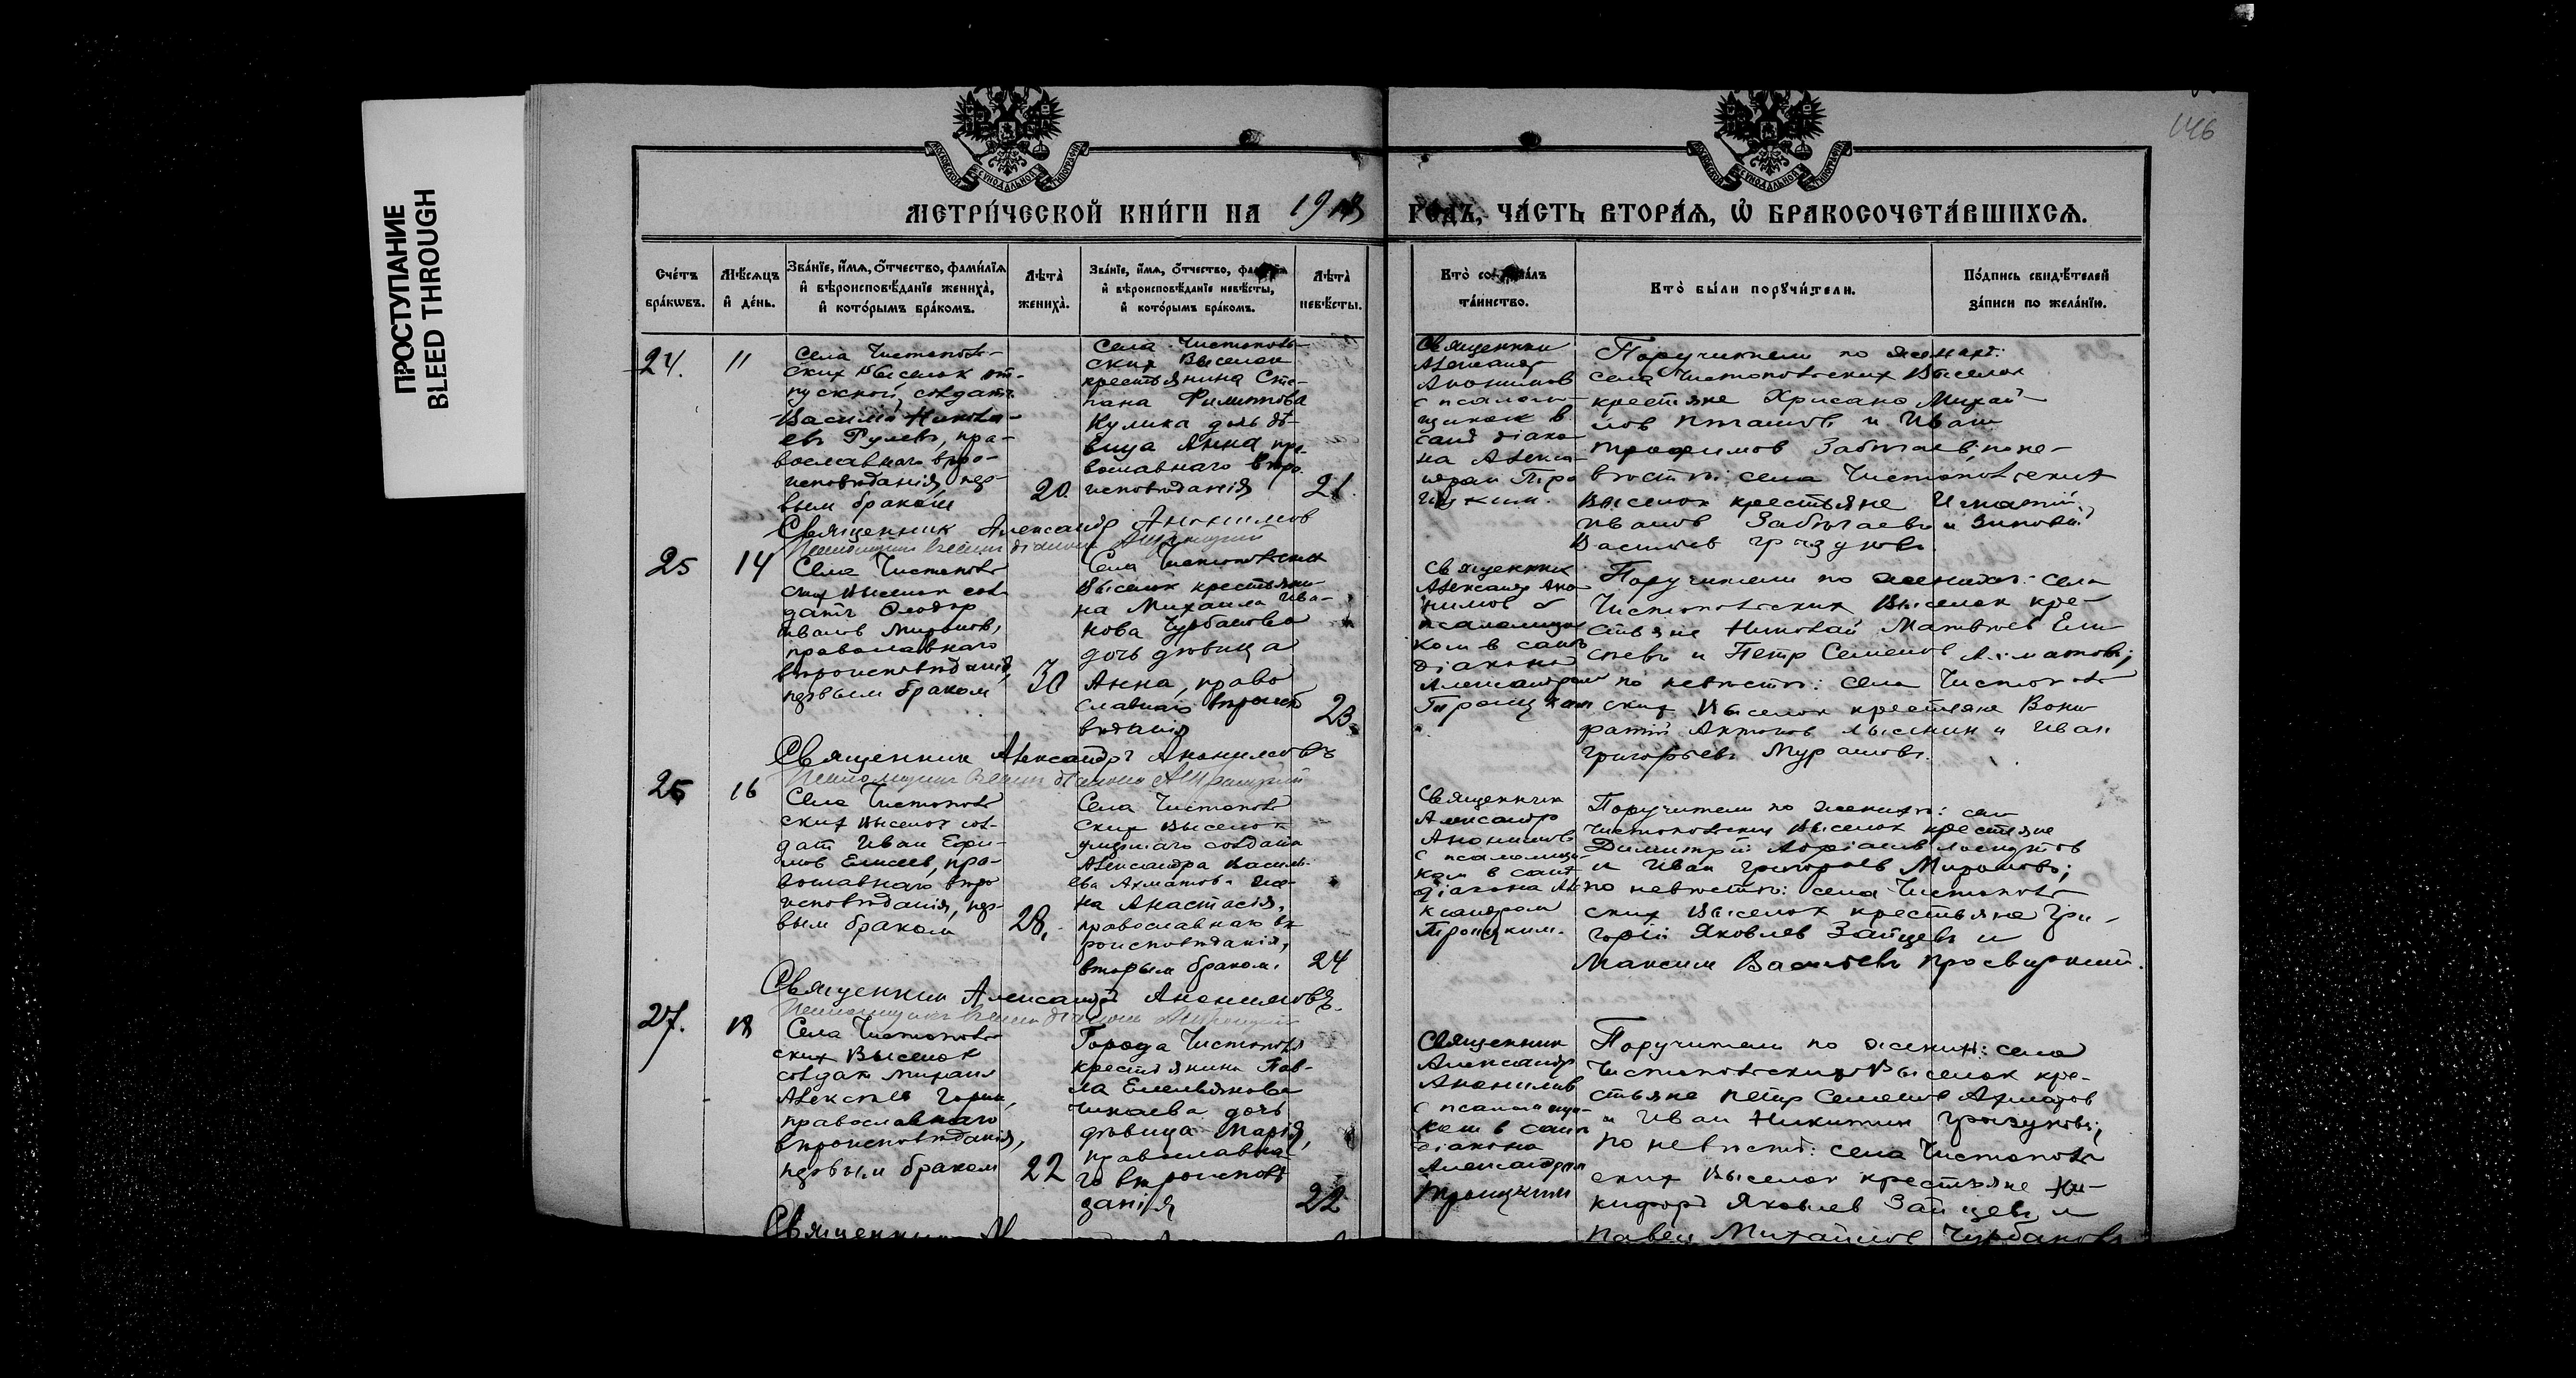 ПРОСТУПАНИЕ
BLEED THROUGH
146
МЕТРИ́ЧЕСКОЙ КНИ́ГИ НА 1918 ГОДЪ, ЧА́СТЬ ВТОРА́Я, Ѿ БРАКОСОЧЕТА́ВШИХСЯ.
Сче́тъ бра́ковъ.
Мѣ́сяцъ и де́нь.
Зва́нїе, и҆́мя, ѻ҆́тчество, фами́лїя и҆ вѣроисповѣ́данїе жениха̀, и҆ кото́рымъ бра́комъ.
Лѣта̀ жениха̀.
Зва́нїе, и҆́мя, ѻ҆́тчество, фами́лїя и҆ вѣроисповѣ́данїе невѣ́сты, и҆ кото́рымъ бра́комъ.
Лѣта̀ невѣ́сты.
Кто̀ соверша́лъ та́инство.
Кто̀ бы́ли порꙋчи́тели.
По́дпись свидѣ́телей за́писи по жела́нїю.
24.
11
Села Чистополь-
ских Выселок от-
пускной солдатъ
Василій Никола-
евъ Рулевъ, пра-
вославнаго вѣро-
исповѣданія, пер-
вым браком
20.
Села Чистополь-
ских Выселок
крестьянина Сте-
пана Филиппова
Кулика дочь дѣ-
вица Анна, пра-
вославнаго вѣро-
исповѣданія
21.
Священник
Александр
Анонимов
с псалом-
щиком в
санѣ діако-
на Алекса-
ндром Тро-
ицким.
Поручители по жених:
села Чистопольских Выселок
крестьяне Хрисанф Михай-
лов и Иван
Трофимов по не-
вѣстѣ: села Чистопольских
Выселок крестьяне Игнатій
Иванов и Зиновій
Васильев Грязуновъ.
Священник Александр Анонимов
25
14
Села Чистополь
ских Выселок сол-
датъ Ѳеодор
Иванов Миронов,
православнаго
вѣроисповѣданія,
первым браком
30
Села Чистопольских
Выселок крестьяни-
на Михаила Ива-
нова Чурбанова
дочь дѣвица
Анна, право
славнаго вѣроиспо
вѣданія
23.
Священник
Александр Ано-
нимов с
псаломщи
ком в санѣ
діакона
Александром
Троицким
Поручители по женихѣ: села
Чистопольских Выселок кре-
стьяне Николай Матвѣев Ели
сѣевъ и Петр Семенов Ахматовъ;
по невѣстѣ: села Чистополь
ских Выселок крестьяне Вони
фатій Антонов Лысенин и Иван
Григорьевъ Мурашовъ.
Священник Александръ Анонимовъ
26
16
Села Чистополь
ских Выселок сол-
дат Иван Ефи-
мов Елисеев, пра-
вославнаго вѣро
исповѣданія, пер-
вым браком
28.
Села Чистополь
ских Выселок
умершаго солдата
Александра Василь-
ева Ахматова же-
на Анастасія,
православнаго вѣ
роисповѣданія,
вторым браком.
24
Священник
Александр
Анонимов
с псаломщи-
ком в санѣ
діакона Але
ксандром
Троицким.
Поручители по женихѣ: села
Чистопольских Выселок крестьяне
Димитрій
и Иван Григорьев Мироновъ;
по невѣстѣ: села Чистополь
ских Выселок крестьяне Гри-
горій Яковлев Зайцевъ и
Максим Васильевъ Просвиркин.
Священник Александр Анонимовъ.
27.
18
Села Чистополь
ских Выселок
солдат Михаил
Алексѣев Горин,
православнаго
вѣроисповѣданія,
первым браком
22
Города Чистополя
крестьянина Пав-
ла Емельянова
дочь
дѣвица Марія,
православна
го вѣроисповѣ
данія
22
Священник
Александр
Анонимов
с псаломщи-
ком в санѣ
діакона
Александром
Троицким
Поручители по жених: села
Чистопольских Выселок кре-
стьяне Петр Семенов Ахматов
и Иван Никитин Грязуновъ;
по невѣстѣ: села Чистополь
ских Выселок крестьяне Ни-
кифор Яковлев Зайцевъ и
Павел Михайлов Чурбановъ
Священник